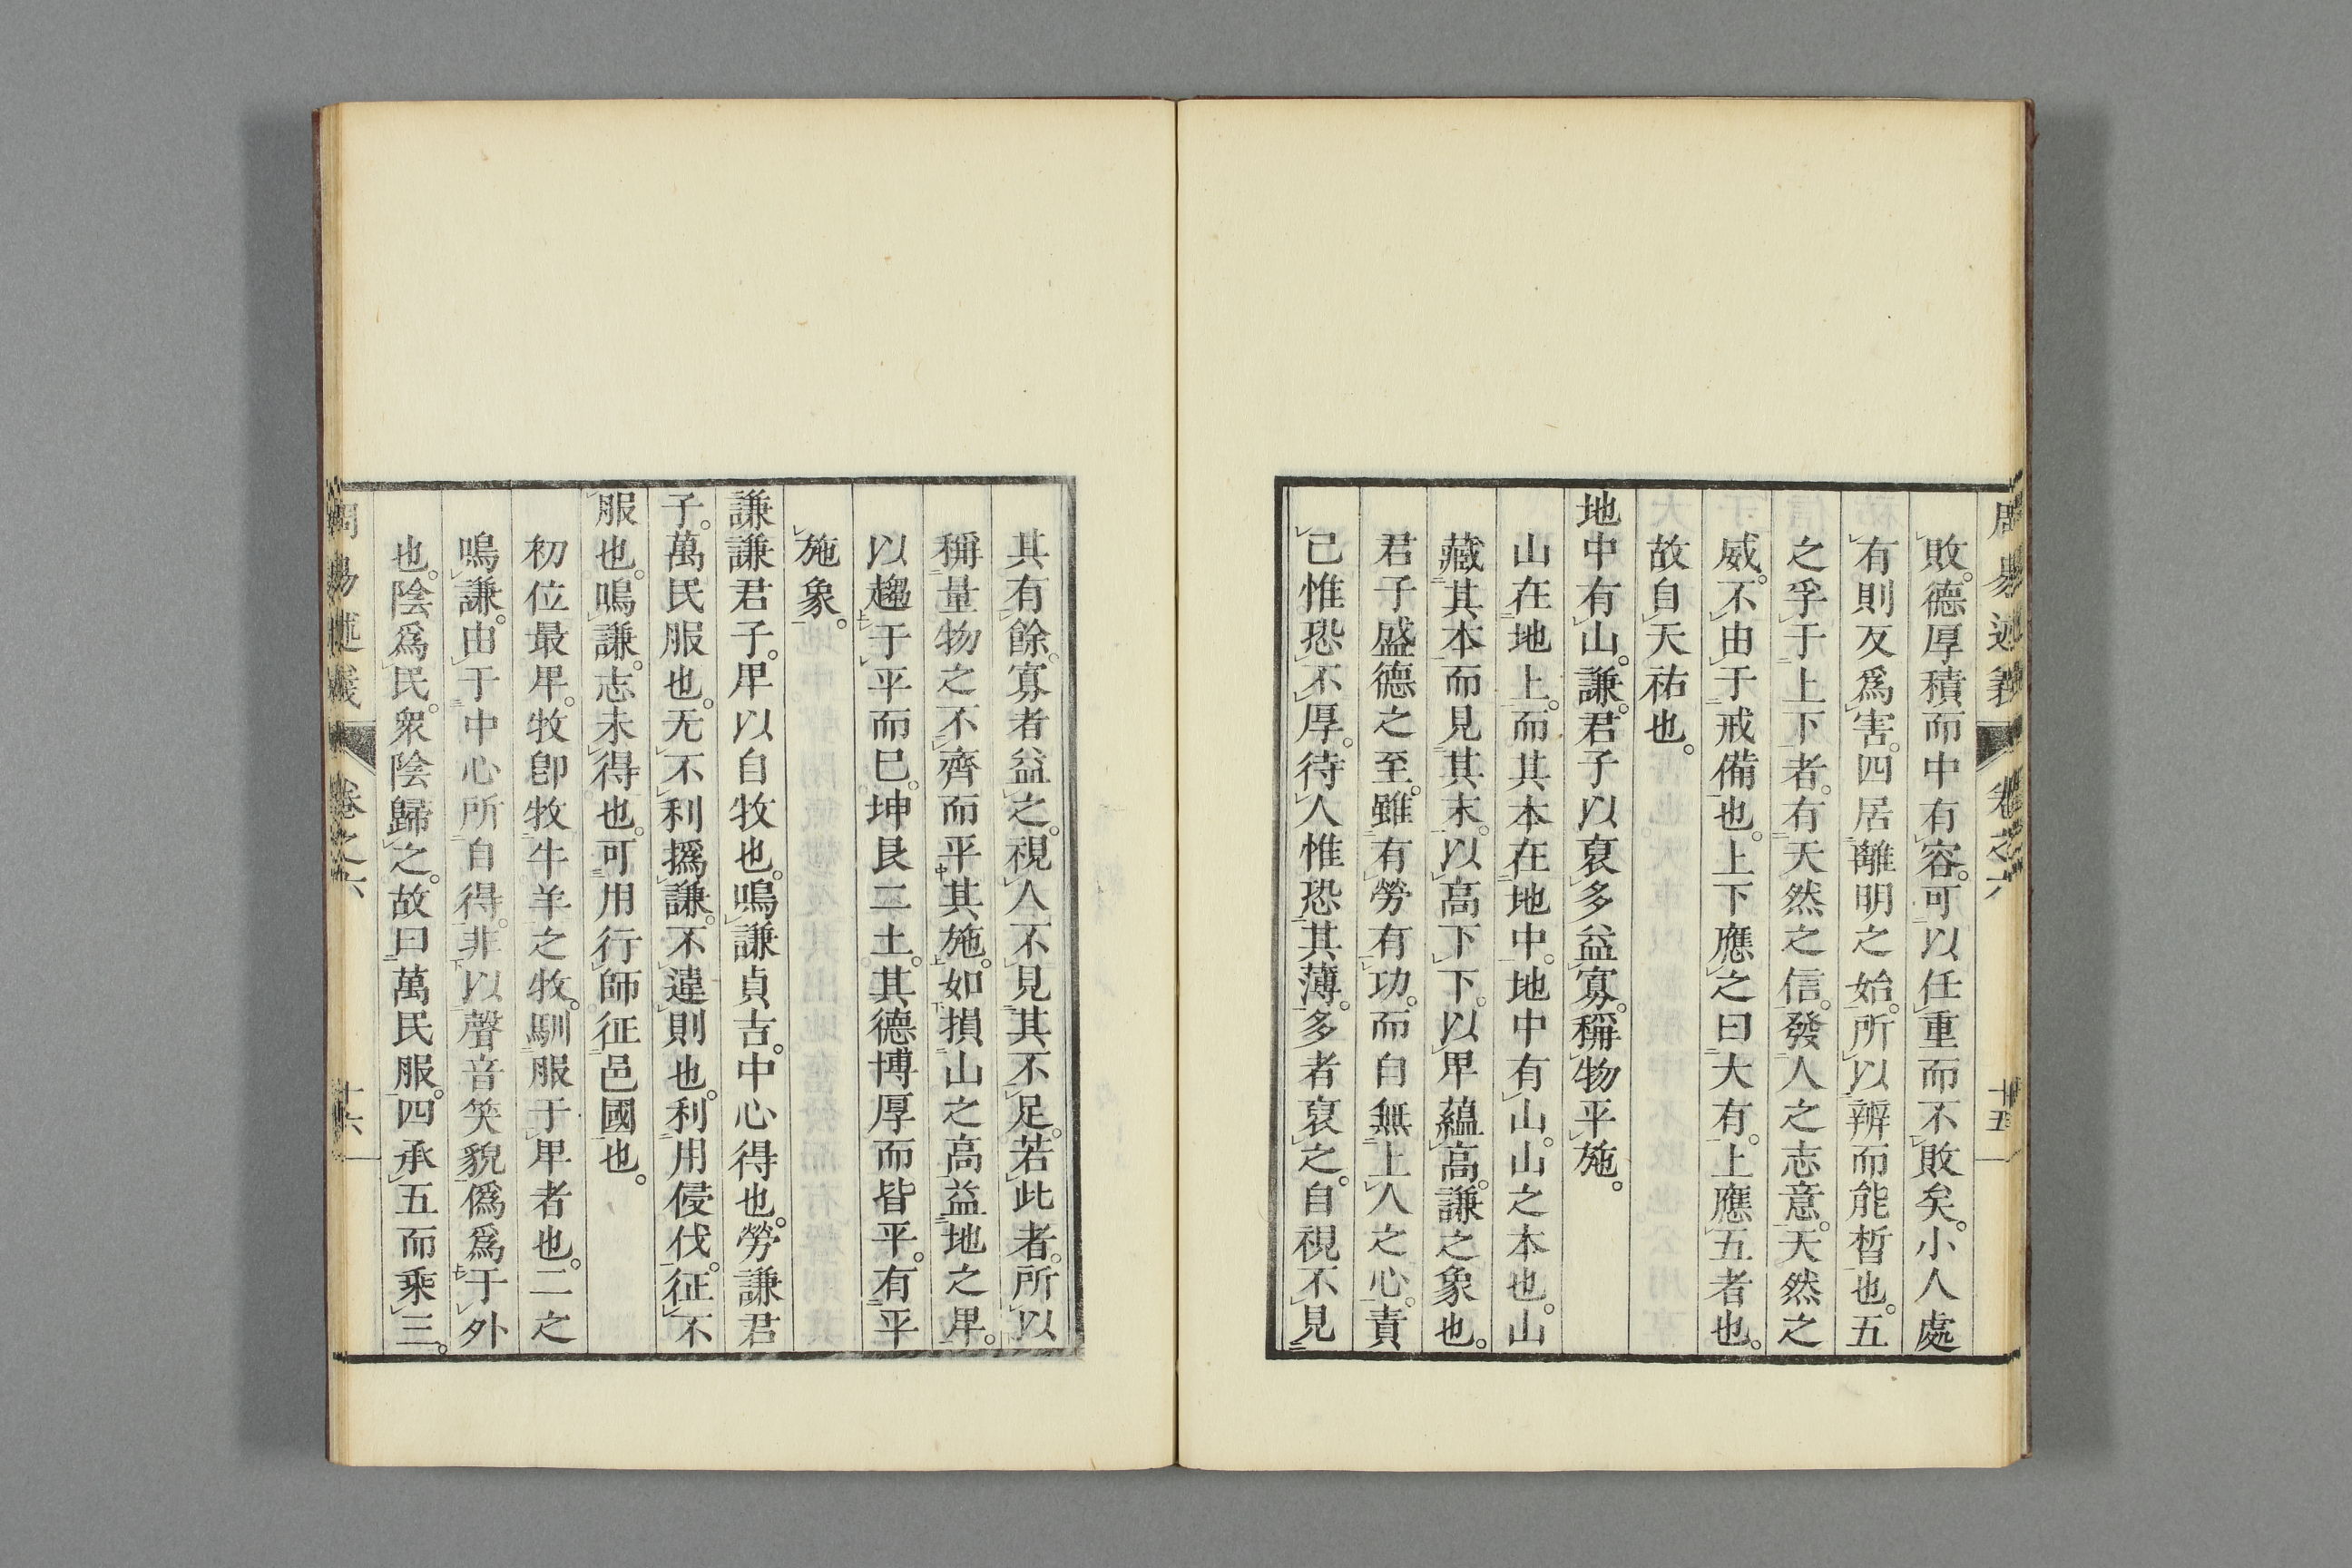 周易述義 卷之六 十五
敗。德厚積而中有容。可以任重而不敗矣。小人處
有則反爲害。四居離明之始。所以辨而能晳也。五
之孚于上下者。有天然之信。發人之志意。天然之
威。不由于戒備也。上下應之曰大有。上應五者也。
故自天祐也。
地中有山。謙。君子以裒多益寡。稱物平施。
山在地上。而其本在地中。地中有山。山之本也。山
藏其本而見其末。以高下下。以卑蘊高。謙之象也。
君子盛德之至。雖有勞有功。而自無上人之心。責
己惟恐不厚。待人惟恐其薄。多者裒之。自視不見
其有餘。寡者益之。視人不見其不足。若此者。所以
稱量物之不齊而平其施。如損山之高益地之卑。
以趨于平而已。坤艮二土。其德博厚而皆平。有平
施象。
謙謙君子。卑以自牧也。鳴謙貞吉。中心得也。勞謙君
子。萬民服也。无不利撝謙。不違則也。利用侵伐。征不
服也。鳴謙。志未得也。可用行師征邑國也。
初位最卑。牧卽牧牛羊之牧。馴服于卑者也。二之
鳴謙。由于中心所自得。非以聲音笑貌僞爲于外
也。陰爲民。衆陰歸之。故曰萬民服。四承五而乘三。
周易述義 卷之六 十六